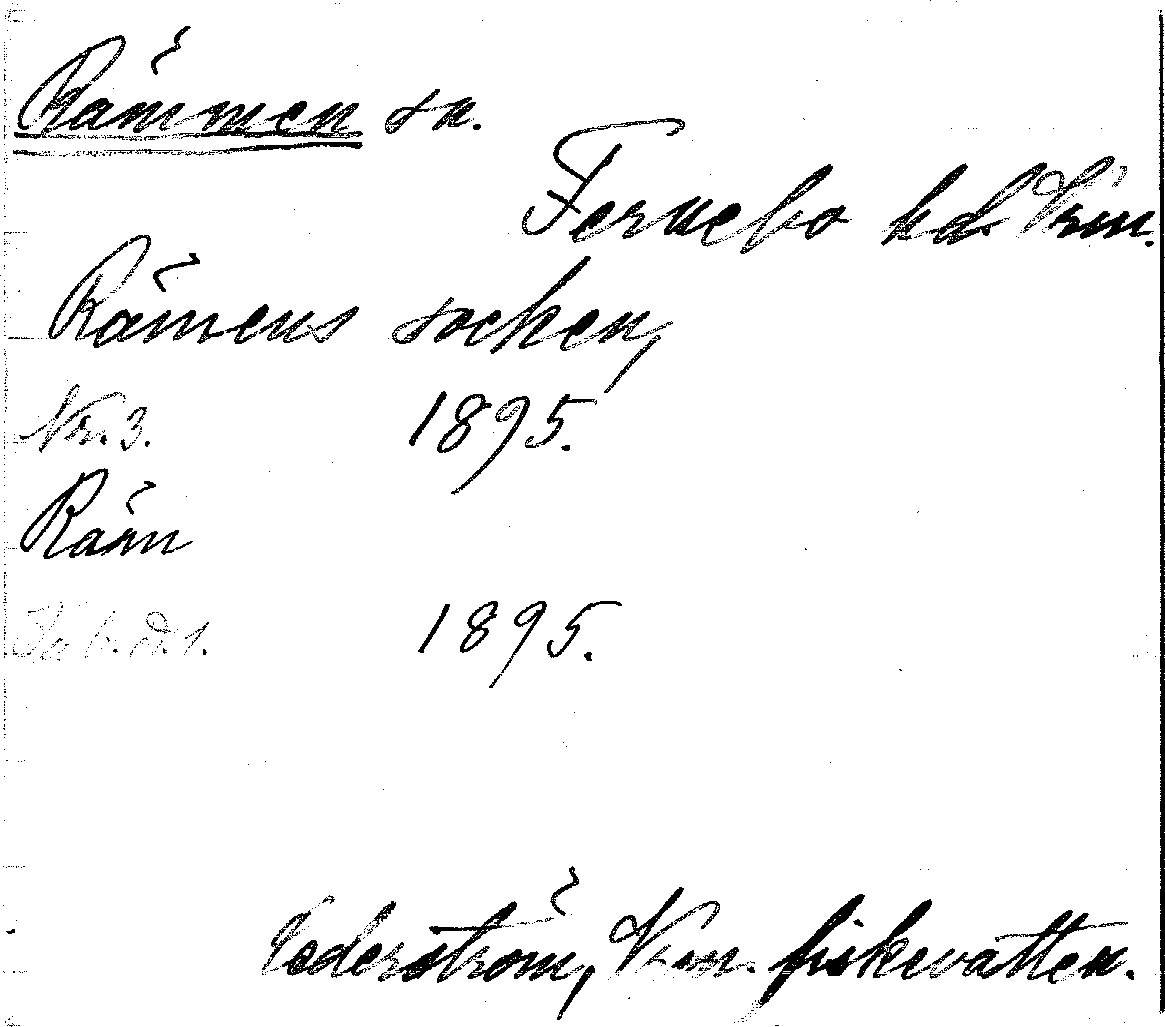 Rämmen sn.
Fernebo hd. Vrm.
Rämens socken,
Nr. 3. 1895.
Räm
1895.
Cederström, Vrm. fiskevatten.